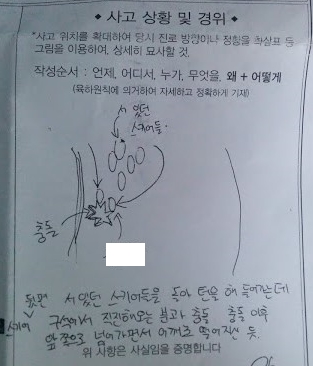 ◆ 사고 상황 및 경위 ◆
*사고 위치를 확대하여 당시 진로 방향이나 정황을 화살표 등
그림을 이용하여, 상세히 묘사할 것.
작성순서 : 언제, 어디서, 누가, 무엇을, 왜 + 어떻게
(육하원칙에 의거하여 자세하고 정확하게 기재)
서 있던
스키어들
충돌
서 있던 스키어들을 돌아 턴을 해 들어가는데
스키어 구석에서 직진해오는 분과 충돌 충돌 이후
앞쪽으로 넘어가면서 어깨로 떨어지신 듯.
위 사항은 사실임을 증명합니다